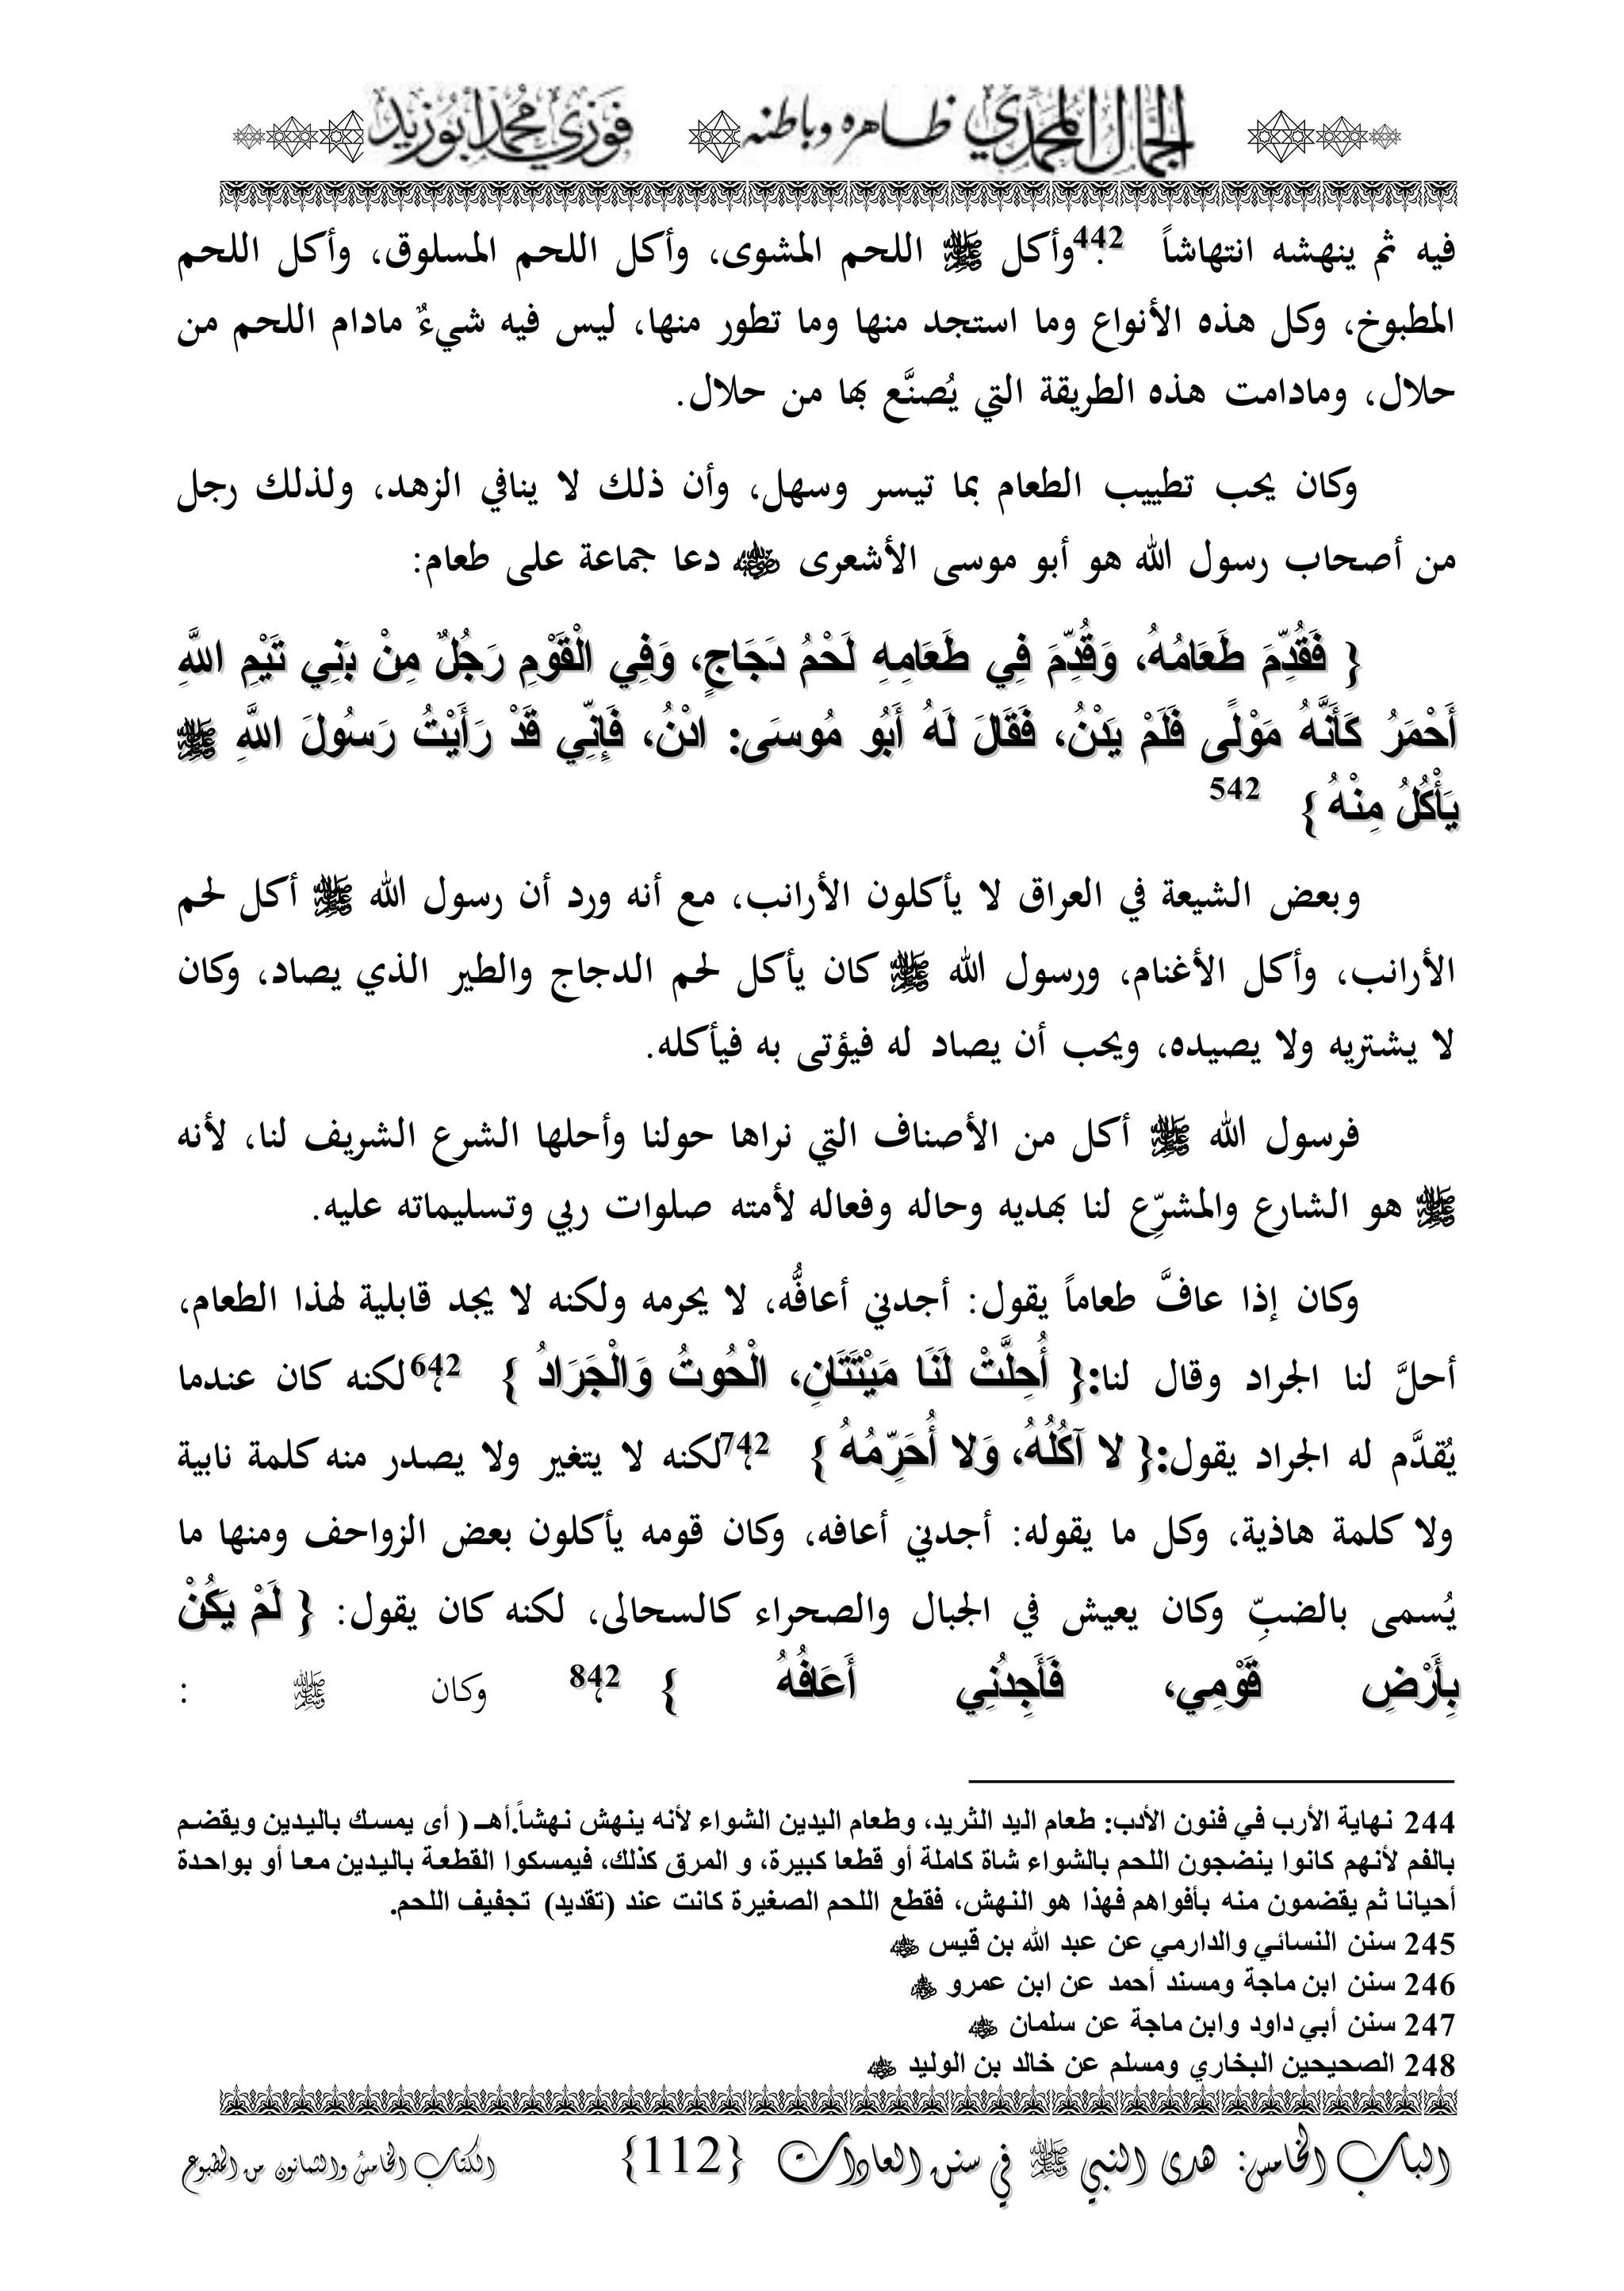 الجمال المحمدي ظاهره وباطنه فوزي محمد أبو زيد
فيه ثم ينهشه انتهاشاً 442.وأكل ﷺ اللحم المشوى، وأكل اللحم المسلوق، وأكل اللحم
المطبوخ، وكل هذه الأنواع وما استجد منها وما تطور منها، ليس فيه شيءٌ مادام اللحم من
حلال، ومادامت هذه الطريقة التي يُصنَّع بها من حلال.
وكان يحب تطييب الطعام بما تيسر وسهل، وأن ذلك لا ينافي الزهد، ولذلك رجل
من أصحاب رسول الله هو أبو موسى الأشعرى ؓ دعا جماعة على طعام:
{ فَقُدِّمَ طَعَامُهُ، وَقُدِّمَ فِي طَعَامِهِ لَحْمُ دَجَاجٍ، وَفِي الْقَوْمِ رَجُلٌ مِنْ بَنِي تَيْمِ اللَّهِ
أَحْمَرُ كَأَنَّهُ مَوْلًى فَلَمْ يَدْنُ، فَقَالَ لَهُ أَبُو مُوسَى: ادْنُ، فَإِنِّي قَدْ رَأَيْتُ رَسُولَ اللَّهِ ﷺ
يَأْكُلُ مِنْهُ } 542
وبعض الشيعة في العراق لا يأكلون الأرانب، مع أنه ورد أن رسول الله ﷺ أكل لحم
الأرانب، وأكل الأغنام، ورسول الله ﷺ كان يأكل لحم الدجاج والطير الذي يصاد، وكان
لا يشتريه ولا يصيده، ويحب أن يصاد له فيؤتى به فيأكله.
فرسول الله ﷺ أكل من الأصناف التي نراها حولنا وأحلها الشرع الشريف لنا، لأنه
ﷺ هو الشارع والمشرِّع لنا بهديه وحاله وفعاله لأمته صلوات ربي وتسليماته عليه.
وكان إذا عافَّ طعاماً يقول: أجدني أعافُّه، لا يحرمه ولكنه لا يجد قابلية لهذا الطعام،
أحلَّ لنا الجراد وقال لنا:{ أُحِلَّتْ لَنَا مَيْتَتَانِ، الْحُوتُ وَالْجَرَادُ } 642، لكنه كان عندما
يُقدَّم له الجراد يقول:{ لا آكُلُهُ، وَلا أُحَرِّمُهُ } 742، لكنه لا يتغير ولا يصدر منه كلمة نابية
ولا كلمة هاذية، وكل ما يقوله: أجدني أعافه، وكان قومه يأكلون بعض الزواحف ومنها ما
يُسمى بالضبِّ وكان يعيش في الجبال والصحراء كالسحالى، لكنه كان يقول: { لَمْ يَكُنْ
بِأَرْضِ قَوْمِي، فَأَجِدُنِي أَعَافُهُ } 842، وكان ﷺ :
244 نهاية الأرب في فنون الأدب: طعام اليد الثريد، وطعام اليدين الشواء لأنه ينهش نهشاً.أهـ ( أى يمسك باليدين ويقضم
بالفم لأنهم كانوا ينضجون اللحم بالشواء شاة كاملة أو قطعا كبيرة، و المرق كذلك، فيمسكوا القطعة باليدين معا أو بواحدة
أحيانا ثم يقضمون منه بأفواهم فهذا هو النهش، فقطع اللحم الصغيرة كانت عند (تقديد) تجفيف اللحم.
245 سنن النسائي والدارمي عن عبد الله بن قيس ؓ
246 سنن ابن ماجة ومسند أحمد عن ابن عمرو ؓ
247 سنن أبي داود وابن ماجة عن سلمان ؓ
248 الصحيحين البخاري ومسلم عن خالد بن الوليد ؓ
الباب الخامس: هدى النبي ﷺ في سنن العادات {112} الكتاب الخامس والثمانون من المطبوع